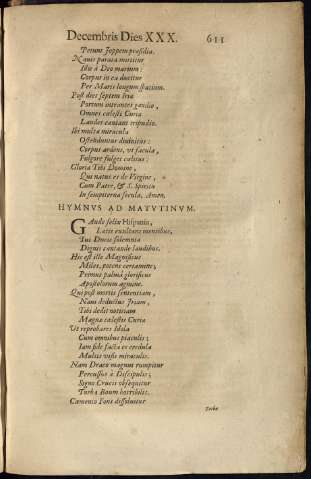 Decembris Dies XXX. 611
Petunt Joppem præsidia.
Navis parata mittitur
Illic à Deo marium:
Corpus in ea ducitur
Per Maris longum spatium.
Post dies septem Iria
Portum intrantes gaudio,
Omnes cælestis Curia
Laudes cantant tripudio.
Ibi multa miracula
Ostenduntur divinitus:
Corpus ardens, ut facula,
Fulgore fulget cælitus:
Gloria Tibi Domine,
Qui natus es de Virgine,
Cum Patre, & S. Spiritu
In sempiterna sæcula. Amen.
HYMNVS AD MATVTINVM.
GAude felix Hispania,
Lætis exultans mentibus,
Tui Ducis solemnia
Dignis cantando laudibus.
Hic est ille Magnificus
Miles, potens certamine;
Primus palmâ glorificus
Apostolorum agmine.
Qui post mortis sententiam,
Nam deductus Iream,
Tibi dedit notitiam
Magna cælestis Curia
Ut reprobares Idola
Cum omnibus piaculis;
Iam fide facta es credula
Multis visis miraculis.
Nam Draco magnus rumpitur
Percussus à Discipulis;
Signo Crucis obsequitur
Turba Boum horribilis.
Cæmento Fons dissolvitur